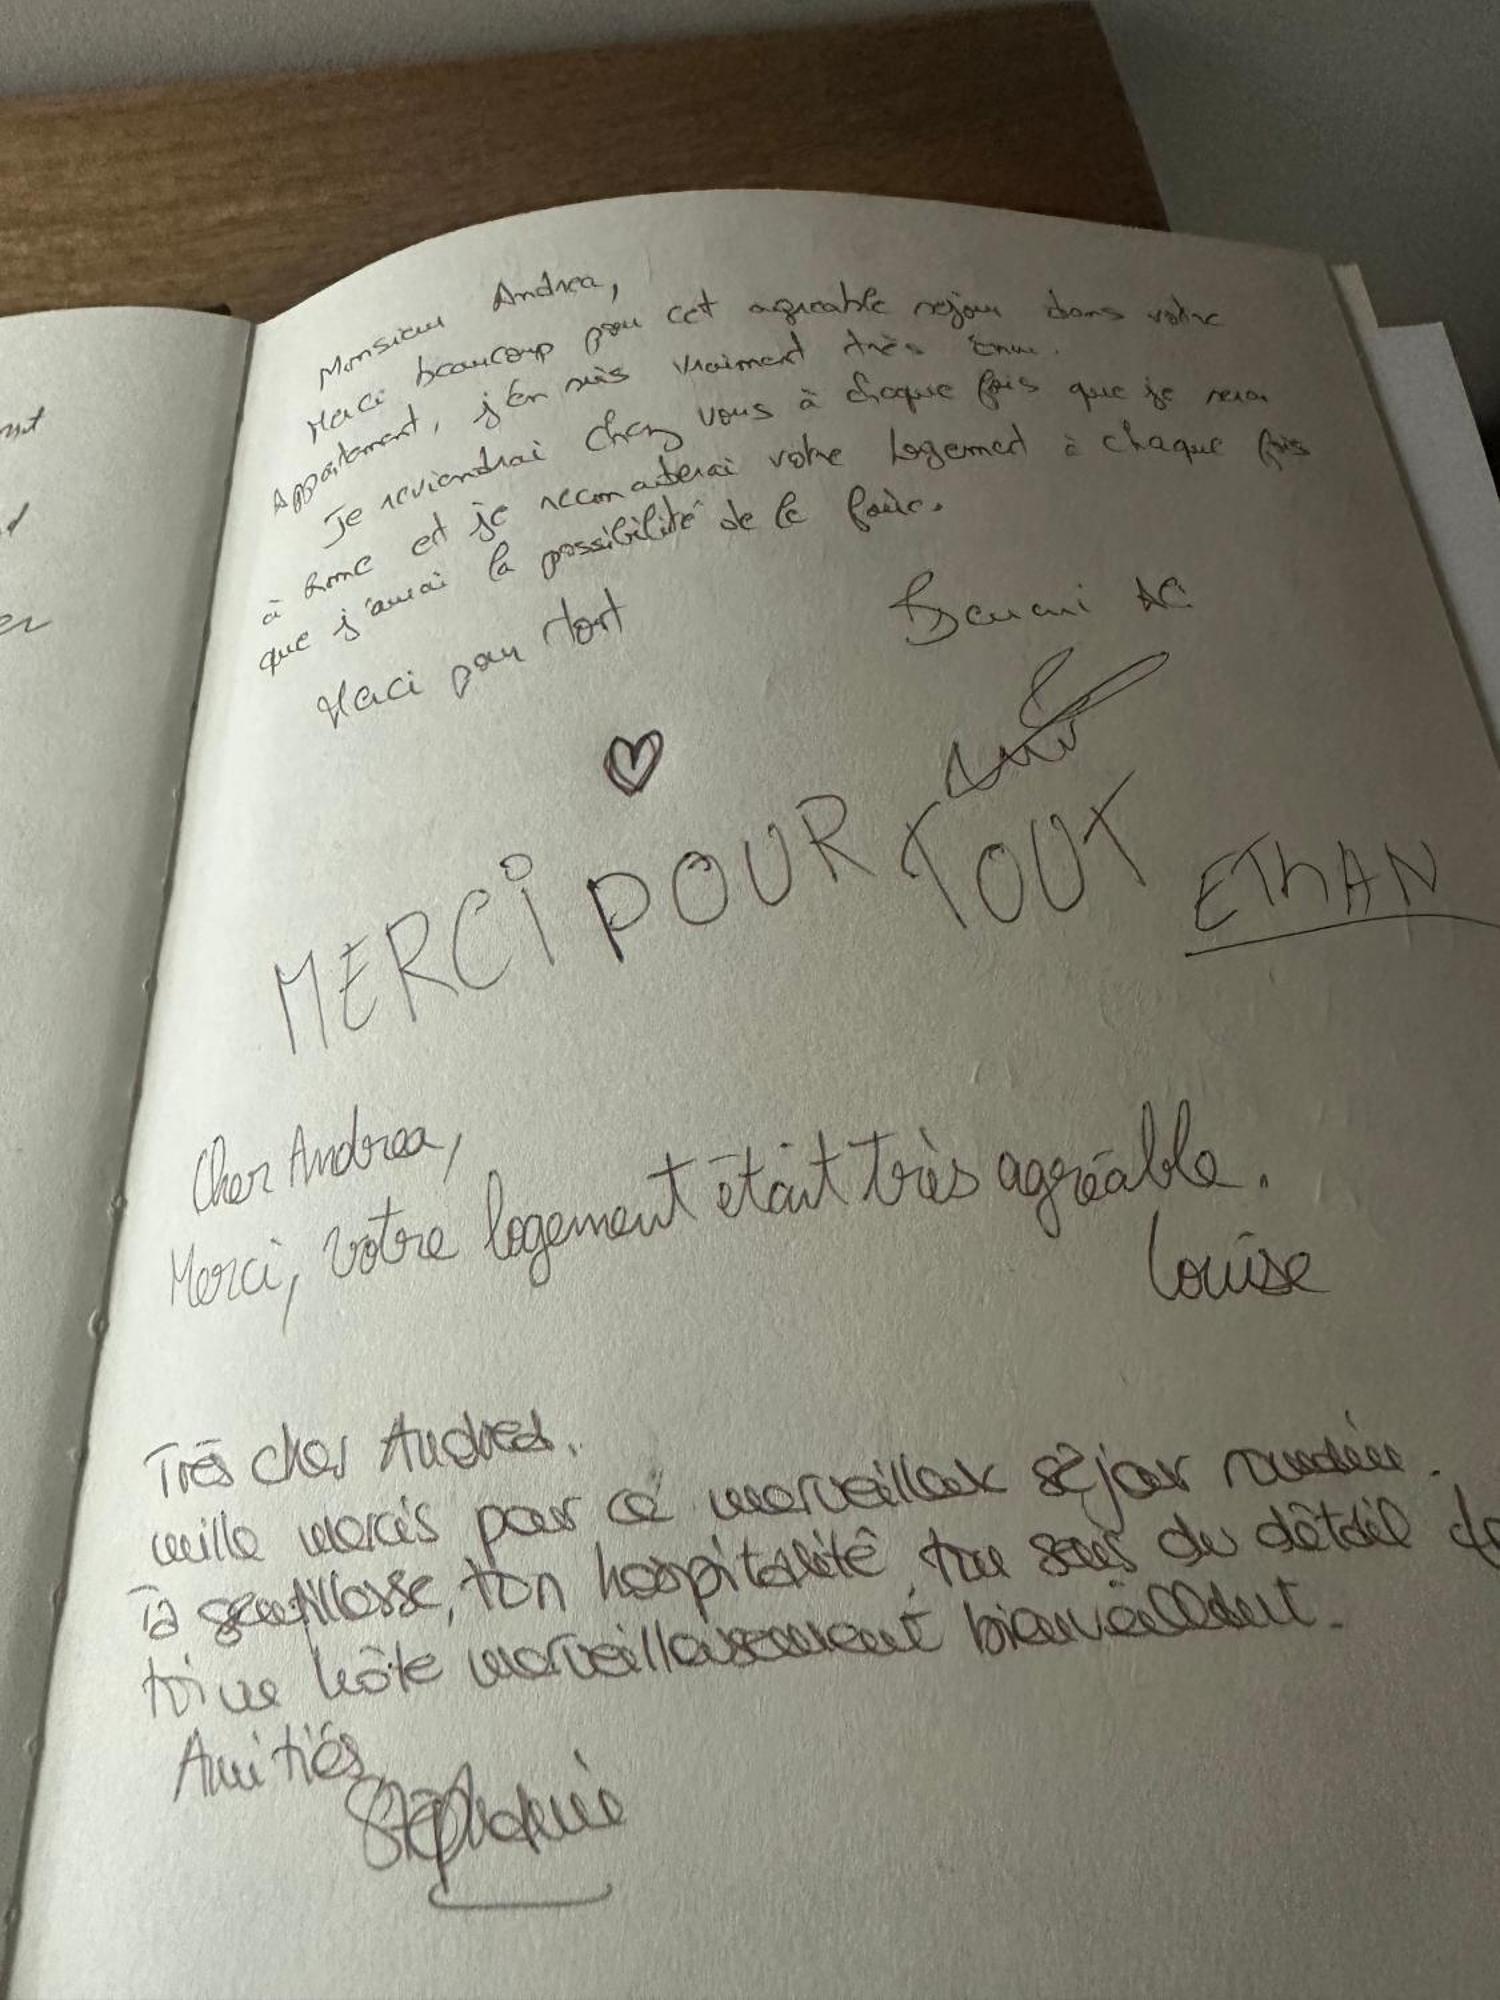 nt
d
er
Monsieur Andrea,
Merci beaucoup pour cet agreable sejour dans votre
Appartement, j'en suis vraiment très ému.
Je reviendrai chez vous à chaque fois que je serai
à Rome et je recontacterai votre logement à chaque fois
que j'aurai la possibilité de le faire.
Merci pour tout
MERCi POUR TOUT
EThAN
Cher Andrea,
Merci, votre logement était très agréable.
Louise
Très cher Andrea.
mille mercis pour ce merveilleux séjour
Ta gentillesse, ton hospitalité, ton sens du détail
hôte merveilleusement bienveillant.
Amitiés
Stéphanie